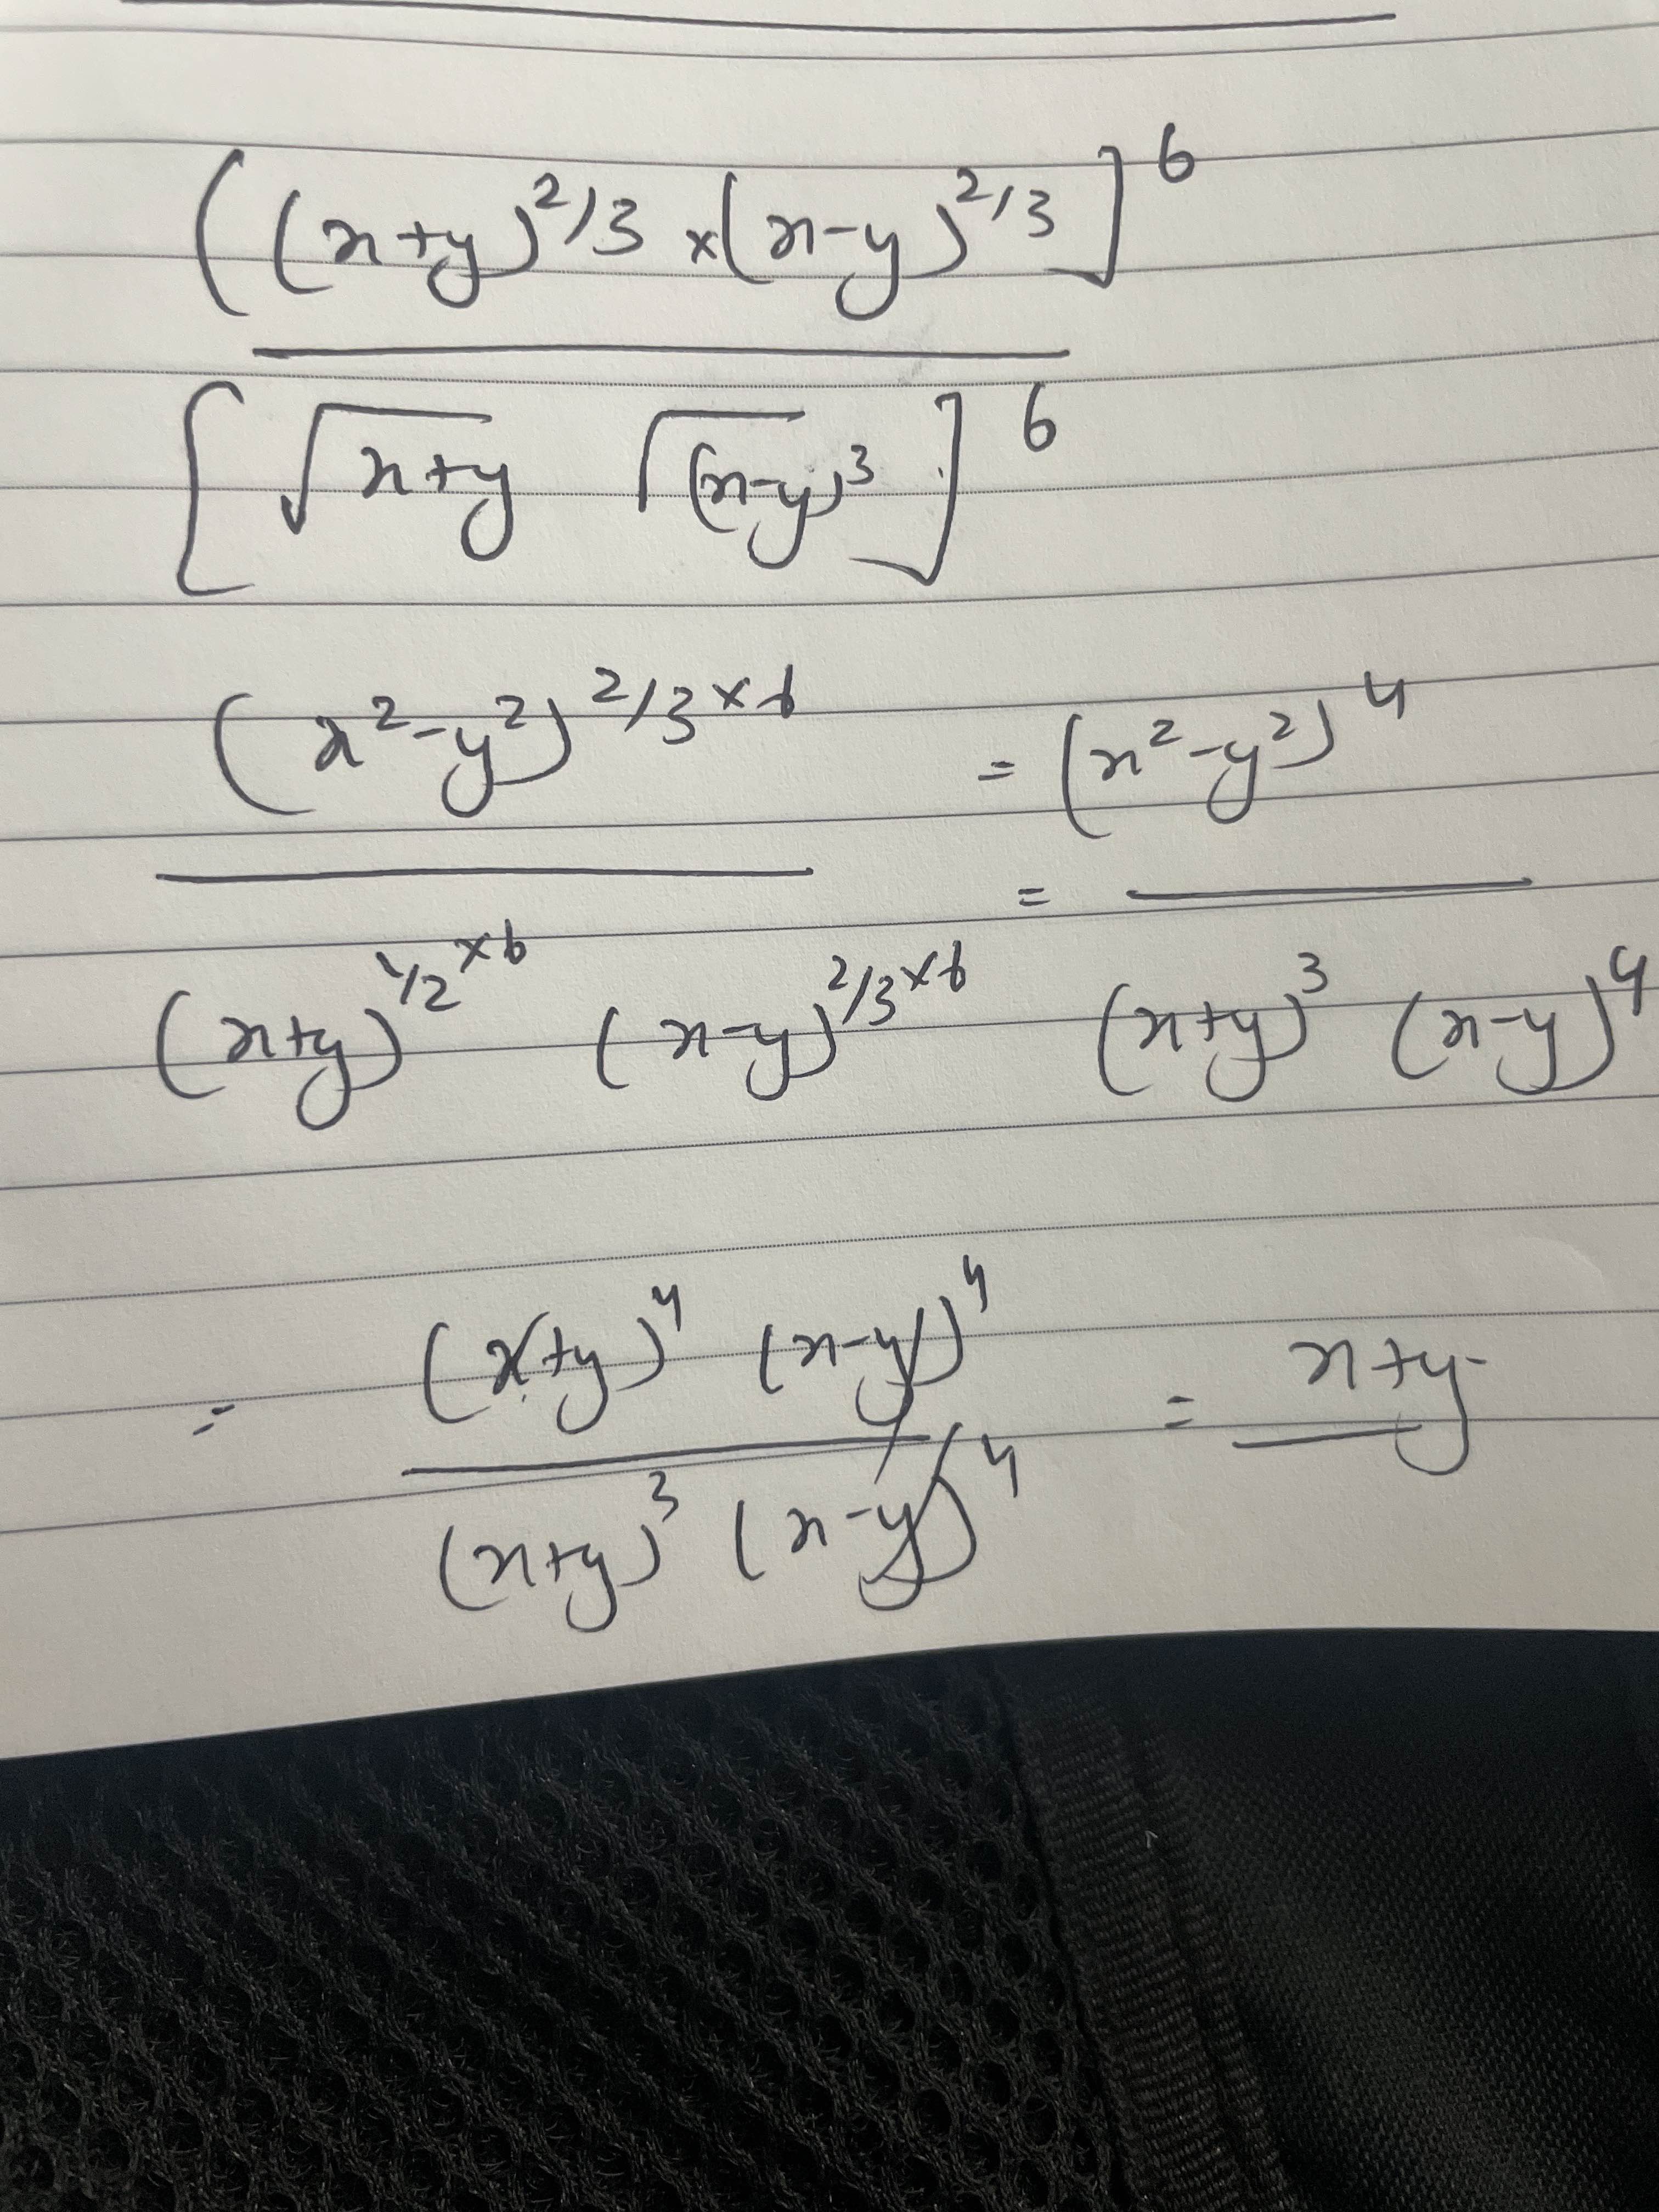 ((x+y)^2/3 ×(x-y)^2/3]^6
[√x+y √(x-y)^3]^6
(x^2-y^2)^2/3×6 = (x^2-y^2)^4
=
(x+y)^1/2×6 (x-y)^2/3×6 (x+y)^3 (x-y)^4
= (x+y)^4 (x-y)^4 = x+y
(x+y)^3 (x-y)^4